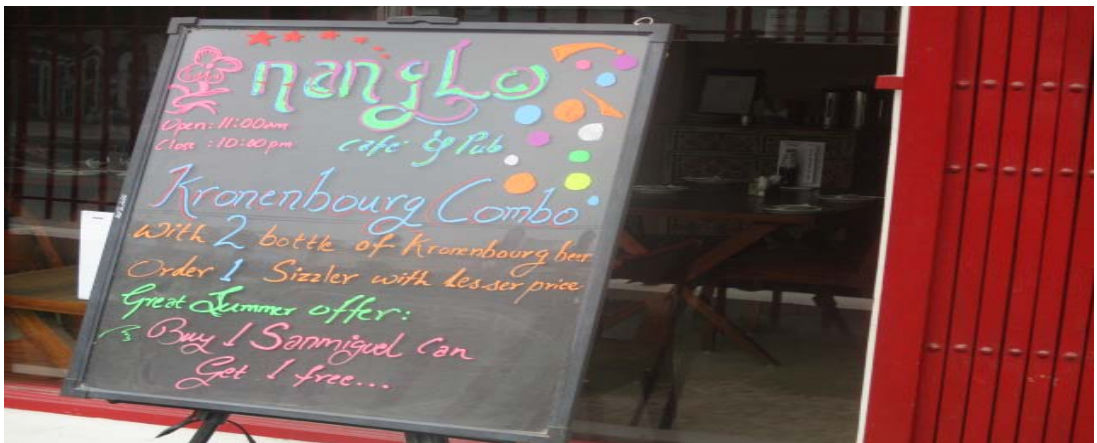 nanglo
Open: 11:00am
Close: 10:00pm
cafe & Pub
Kronenbourg Combo
With 2 bottle of Kronenbourg beer
Order 1 Sizzler with Lesser price
Great Summer offer:
Buy 1 Sanmiguel Can
Get 1 free...